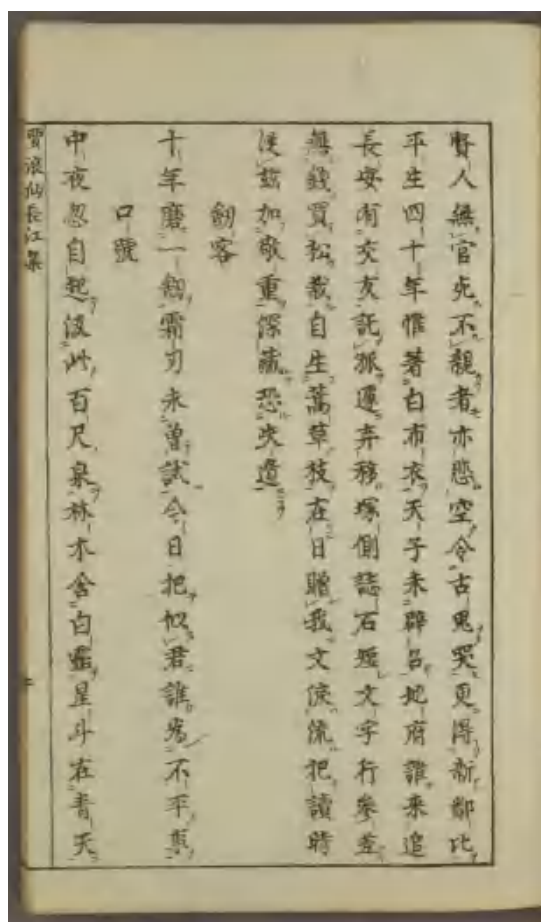 賢人無官死不親者亦悲空令古鬼哭更得新鄰比
平生四十年惟著白布衣天子未辟召地府誰來追
長安有交友託孤遽弃移塚側誌石短文字行參差
無錢買松栽自生蒿草枝在日贈我文淚流把讀時
從茲加敬重深藏恐失遺
劒客
十年磨一劒霜刃未曾試今日把似君誰為不平事
口號
中夜忽自起汲此百尺泉林木含白露星斗在青天
賈浪仙長江集